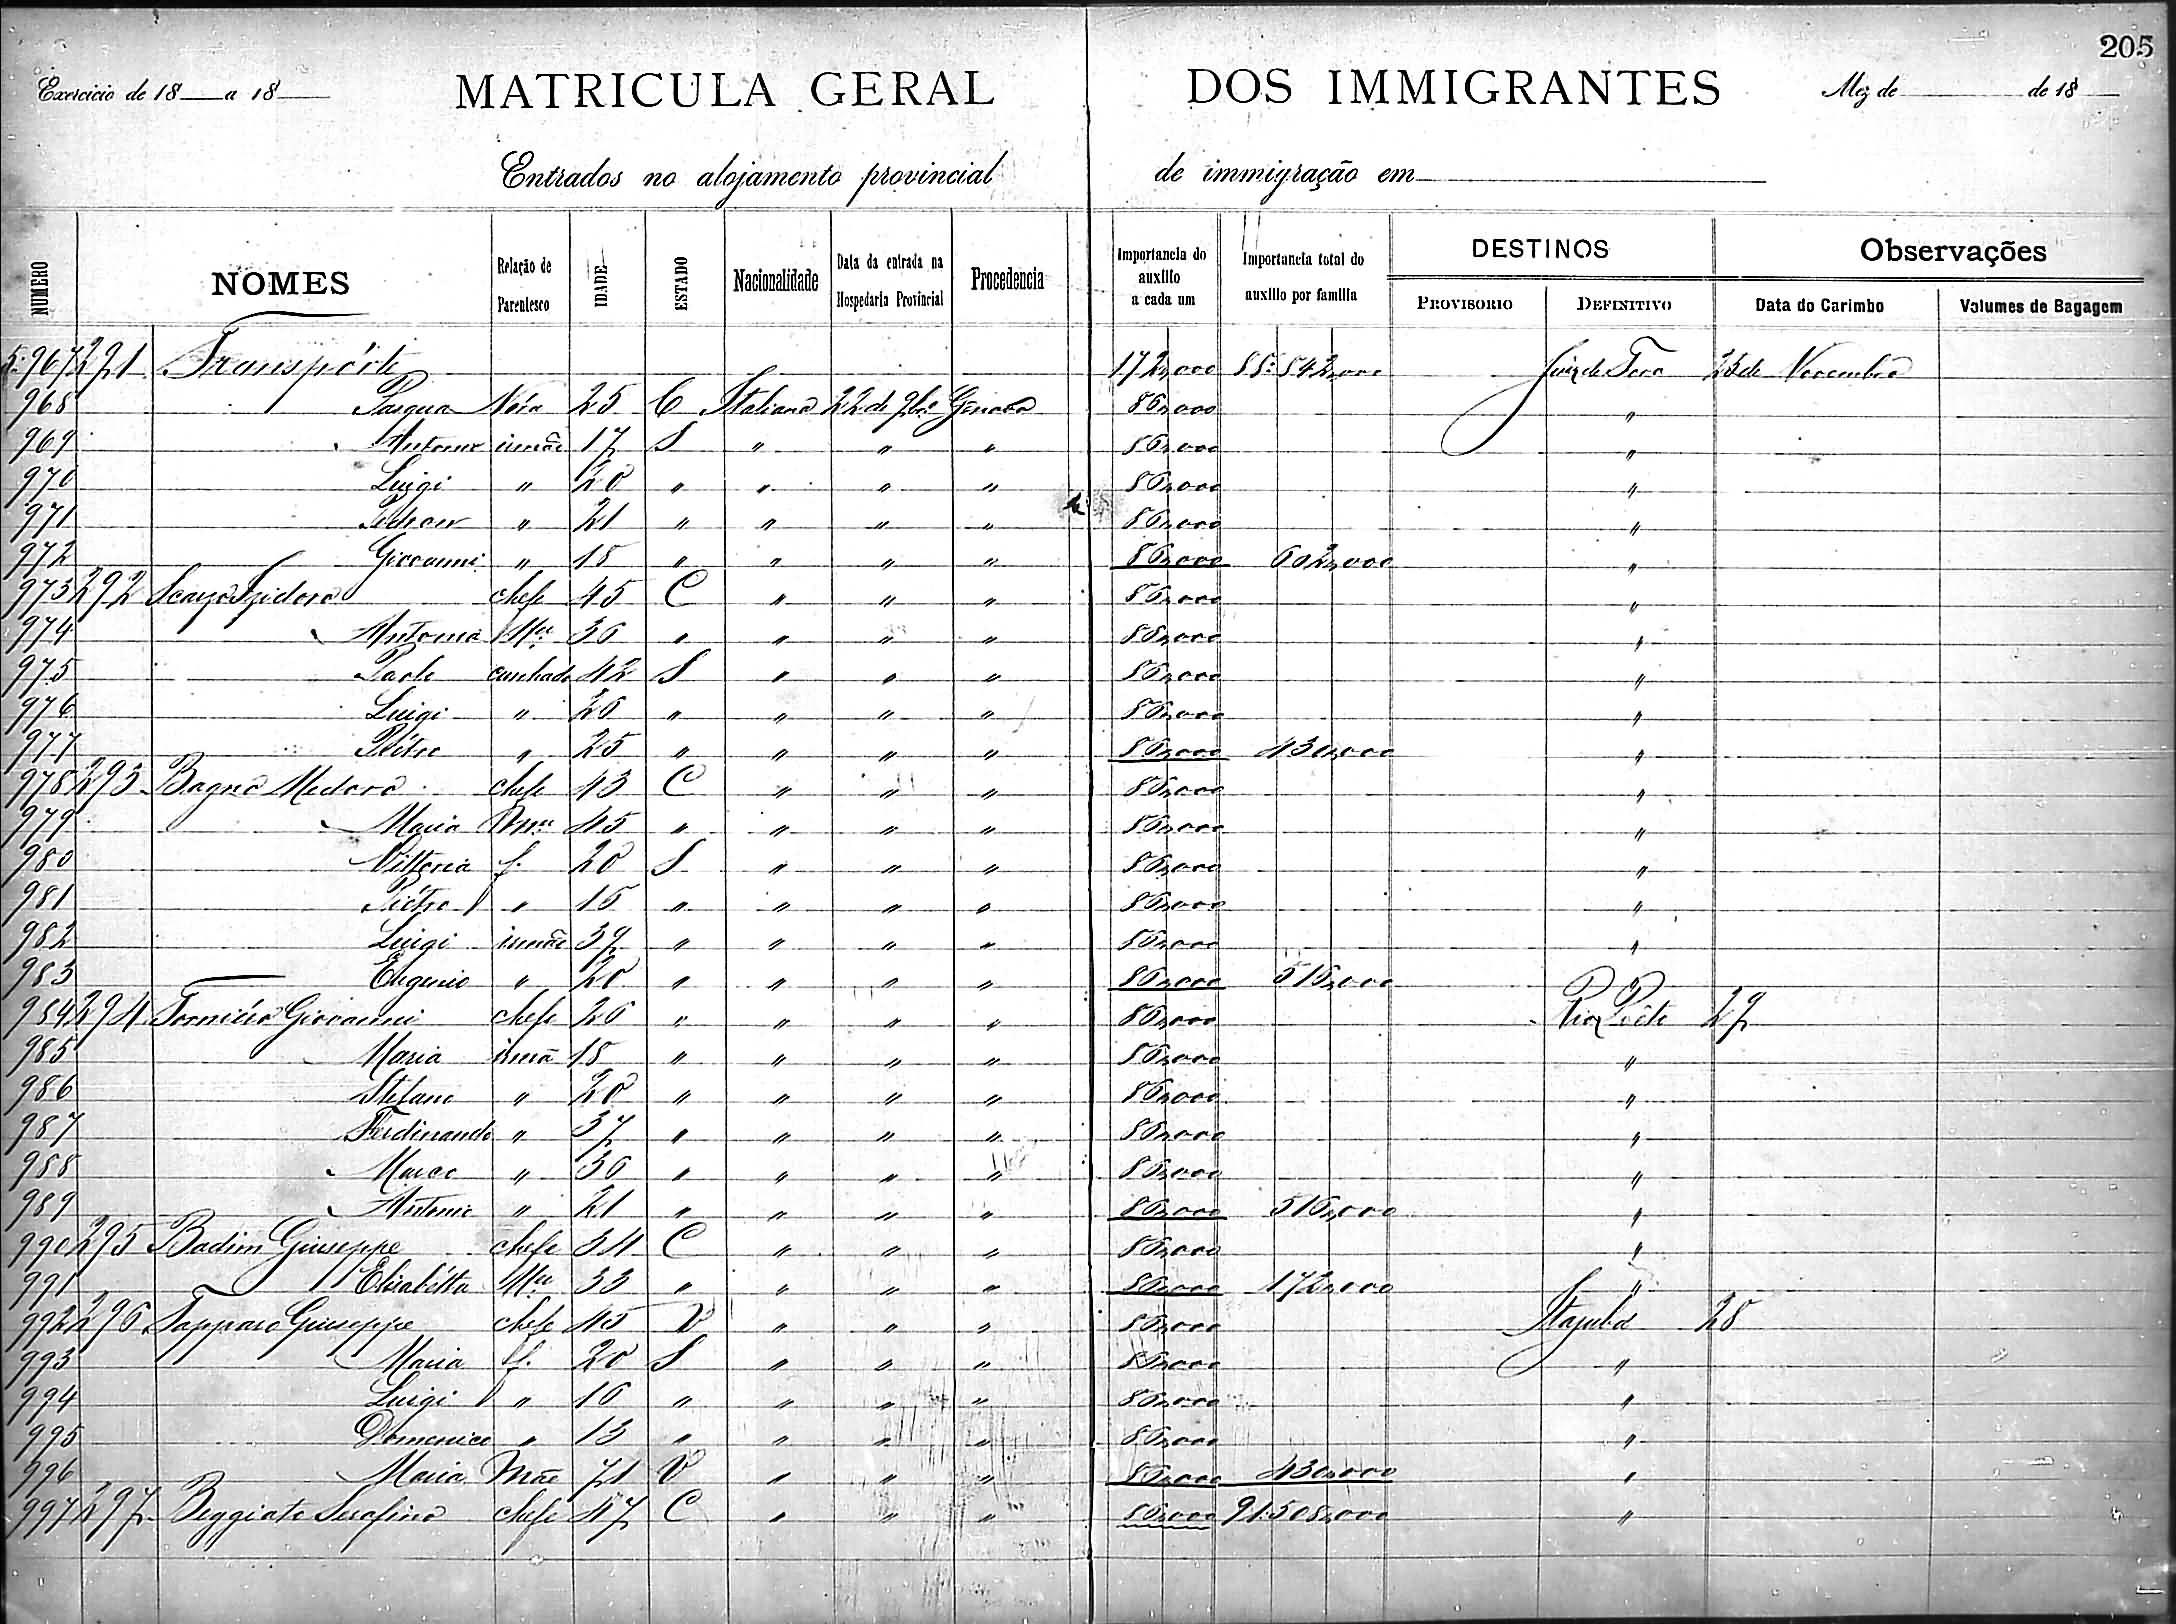 205
Exercicio de 18 a 18 MATRICULA GERAL DOS IMMIGRANTES Mez de de 18
Entrados no alojamento provincial de immigração em
NUMERO NOMES Relação de Parentesco IDADE ESTADO Nacionalidade Data da entrada na Hospedaria Provincial Procedencia Importancia do auxilio a cada um Importancia total do auxilio por familia DESTINOS PROVISORIO DEFINITIVO Observações Data do Carimbo Volumes de Bagagem
5:967 291 Transpórte 172,000 88:842,000 Juiz de Fora 25 de Novembro
968 Pasqua Nóra 25 C Italiana 22 de 9bro Genova 86,000 "
969 Antonio irmão 17 S " " " 86,000 "
970 Luigi " 20 " " " " 86,000 "
971 " 21 " " " " 86,000 "
972 Giovanni " 18 " " " " 86,000 602,000 "
973 292 chefe 45 C " " " 86,000 "
974 Antonia Mer 36 " " " " 86,000 "
975 Paolo cunhado 42 S " " " 86,000 "
976 Luigi " 26 " " " " 86,000 "
977 Piétro " 25 " " " " 86,000 430,000 "
978 293 Bagno Medoro chefe 43 C " " " 86,000 "
979 Maria Mer 45 " " " " 86,000 "
980 Vittoria f. 20 S " " " 86,000 "
981 Piétro " 15 " " " " 86,000 "
982 Luigi irmão 37 " " " " 86,000 "
983 Eugenio " 20 " " " " 86,000 516,000 "
984 294 Giovanni chefe 26 " " " " 86,000 27
985 Maria irmã 18 " " " " 86,000 "
986 Stefano " 20 " " " " 86,000 "
987 Ferdinando " 37 " " " " 86,000 "
988 Marco " 36 " " " " 86,000 "
989 Antonio " 21 " " " " 86,000 516,000 "
990 295 Badim Giuseppe chefe 34 C " " " 86,000 "
991 Elisabétta Mer 33 " " " " 86,000 172,000 "
992 296 Tapparo Giuseppe chefe 45 V " " " 86,000 Itajubá 28
993 Maria f. 20 S " " " 86,000 "
994 Luigi " 16 " " " " 86,000 "
995 Domenico " 13 " " " " 86,000 "
996 Maria Mãe 71 V " " " 86,000 430,000 "
997 297 Beggiato Serafino chefe 47 C " " " 86,000 91:508,000 "